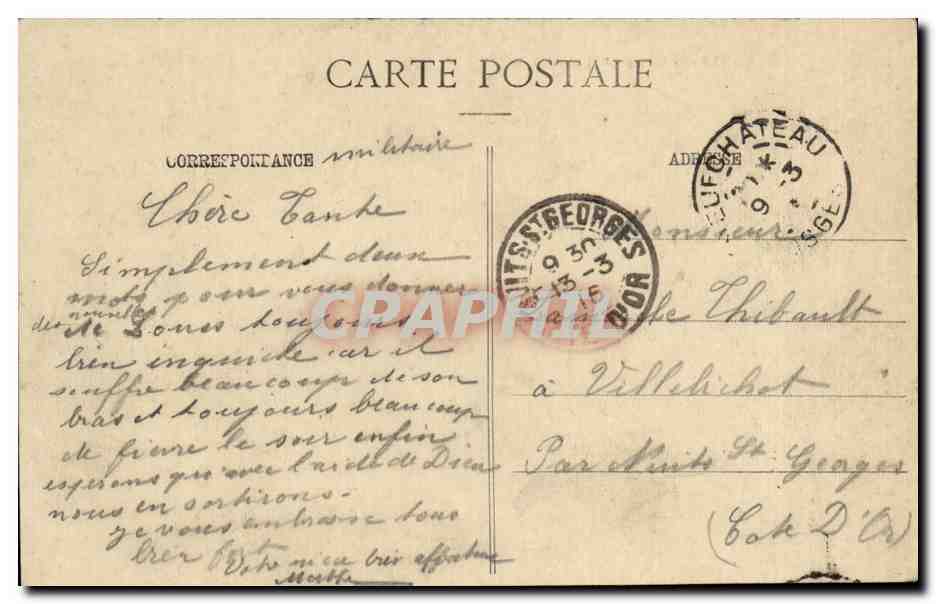 CARTE POSTALE
CORRESPONDANCE militaire
ADRESSE
Chère Tante
Simplement deux
mots pour vous donner
des nouvelles
de Louis toujours
bien inquiide car il
souffre beaucoup de son
bras et toujours beaucoup
de fievre le soir enfin
esperons qu'avec l'aide de Dieu
nous en sortirons.
je vous embrasse tous
bien fort
Votre niece bien affectueuse
Marthe
NEUFCHATEAU
9 -3
VOSGES
NUITS-ST-GEORGES
9 30
13 -3
15
D'OR
Monsieur
Thibault
à Villebichot
Par Nuits St Georges
(Cote D'Or)
CRAPHIL